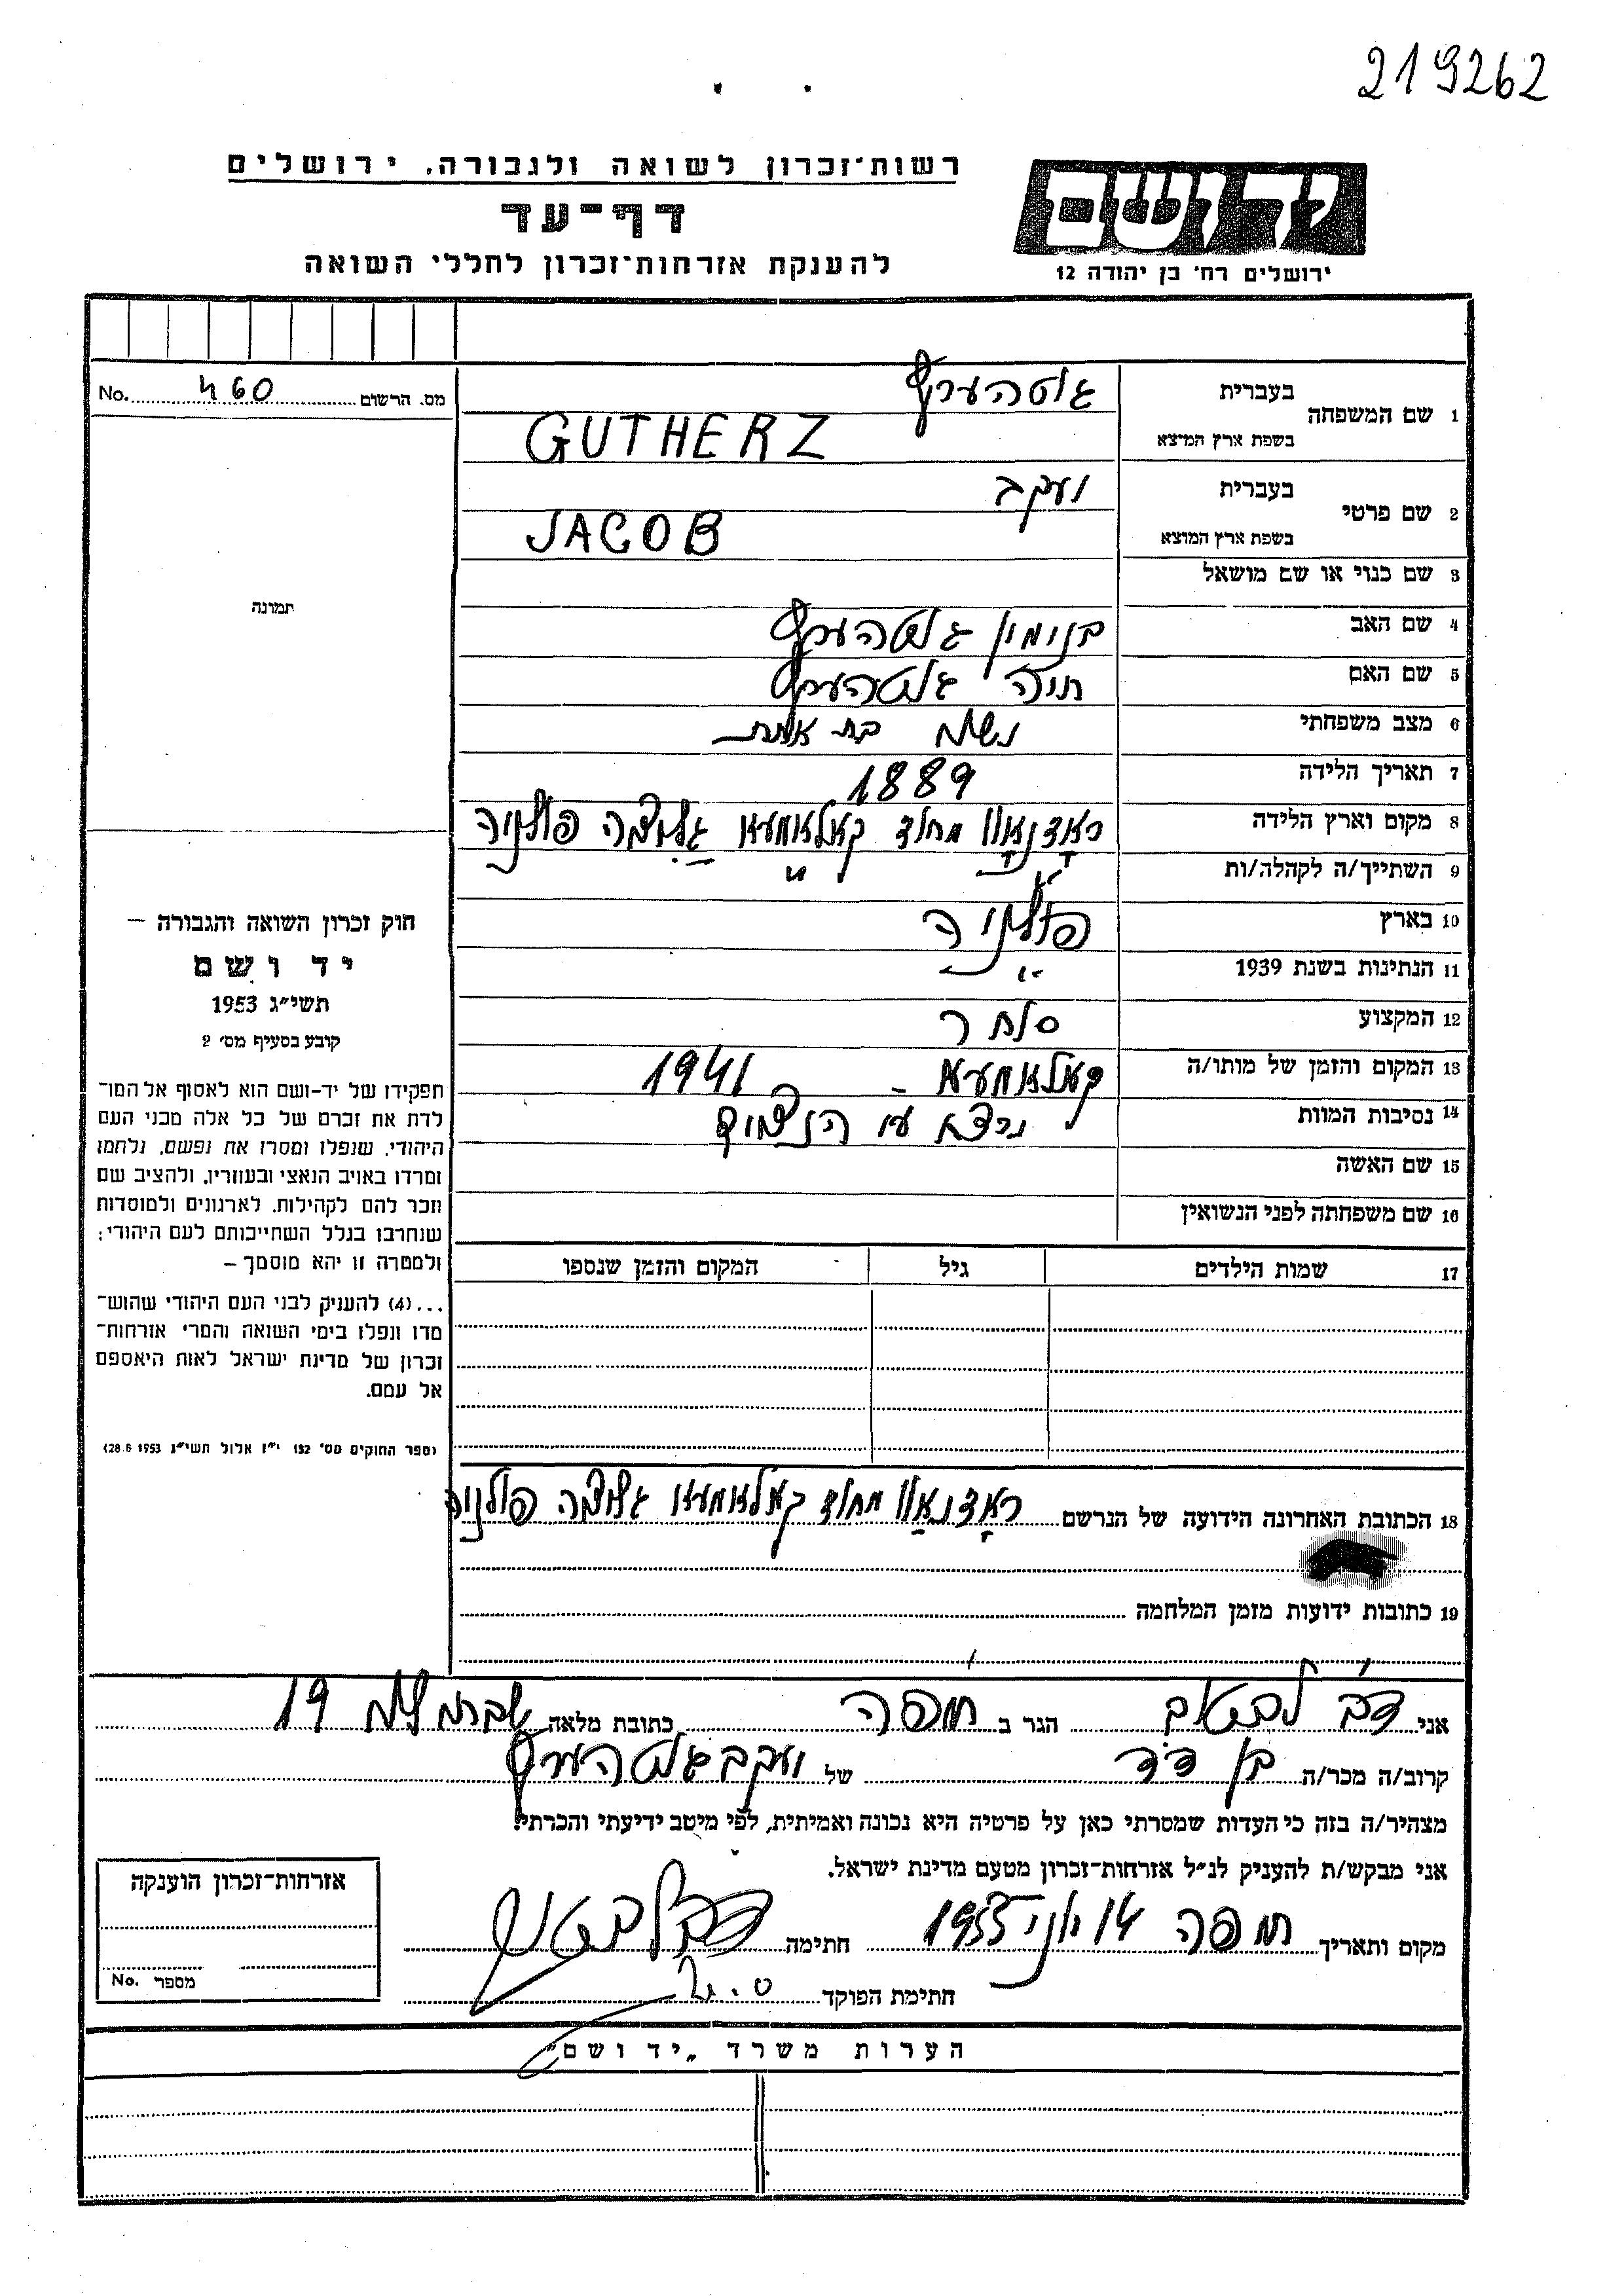 219262
רשות־זכרון לשואה ולגבורה, ירושלים
ידושם
דף־עד
להענקת אזרחות־זכרון לחללי השואה
ירושלים רח׳ בן יהודה 12
מס. הרשום 460 No.
1 שם המשפחה
בעברית גוטהערץ
בשפת ארץ המוצא GUTHERZ
2 שם פרטי
בעברית יעקב
בשפת ארץ המוצא JACOB
3 שם כנוי או שם מושאל
4 שם האב בנימין גוטהערץ
5 שם האם חיה גוטהערץ
6 מצב משפחתי נשוי בת אחת
7 תאריך הלידה 1889
8 מקום וארץ הלידה מחוז קאלאמעא פולניה
9 השתייך/ה לקהלה/ות
10 בארץ פולניה
11 הנתינות בשנת 1939 -"-
12 המקצוע סוחר
13 המקום והזמן של מותו/ה קאלאמעא - 1941
14 נסיבות המוות
15 שם האשה
16 שם משפחתה לפני הנשואין
17 שמות הילדים גיל המקום והזמן שנספו
18 הכתובת האחרונה הידועה של הנרשם מחוז קאלאמעא פולניה
19 כתובות ידועות מזמן המלחמה
תמונה
חוק זכרון השואה והגבורה —
יד ושם
תשי״ג 1953
קובע בסעיף מס׳ 2
תפקידו של יד־ושם הוא לאסוף אל המו־
לדת את זכרם של כל אלה מבני העם
היהודי, שנפלו ומסרו את נפשם, נלחמו
ומרדו באויב הנאצי ובעוזריו, ולהציב שם
וזכר להם לקהילות, לארגונים ולמוסדות
שנחרבו בגלל השתייכותם לעם היהודי;
ולמטרה זו יהא מוסמך —
...(4) להעניק לבני העם היהודי שהוש־
מדו ונפלו בימי השואה והמרי אזרחות־
זכרון של מדינת ישראל לאות היאספם
אל עמם.
(ספר החוקים מס׳ 132 י״ז אלול תשי״ג 28.8.1953)
אני הגר ב חיפה כתובת מלאה 19
קרוב/ה מכר/ה בן דד של יעקב גוטהערץ
מצהיר/ה בזה כי העדות שמסרתי כאן על פרטיה היא נכונה ואמיתית, לפי מיטב ידיעתי והכרתי.
אני מבקש/ת להעניק לנ״ל אזרחות־זכרון מטעם מדינת ישראל.
מקום ותאריך חיפה 14 יוני 1955 חתימה
חתימת הפוקד
אזרחות־זכרון הוענקה
מספר No.
הערות משרד „יד ושם"